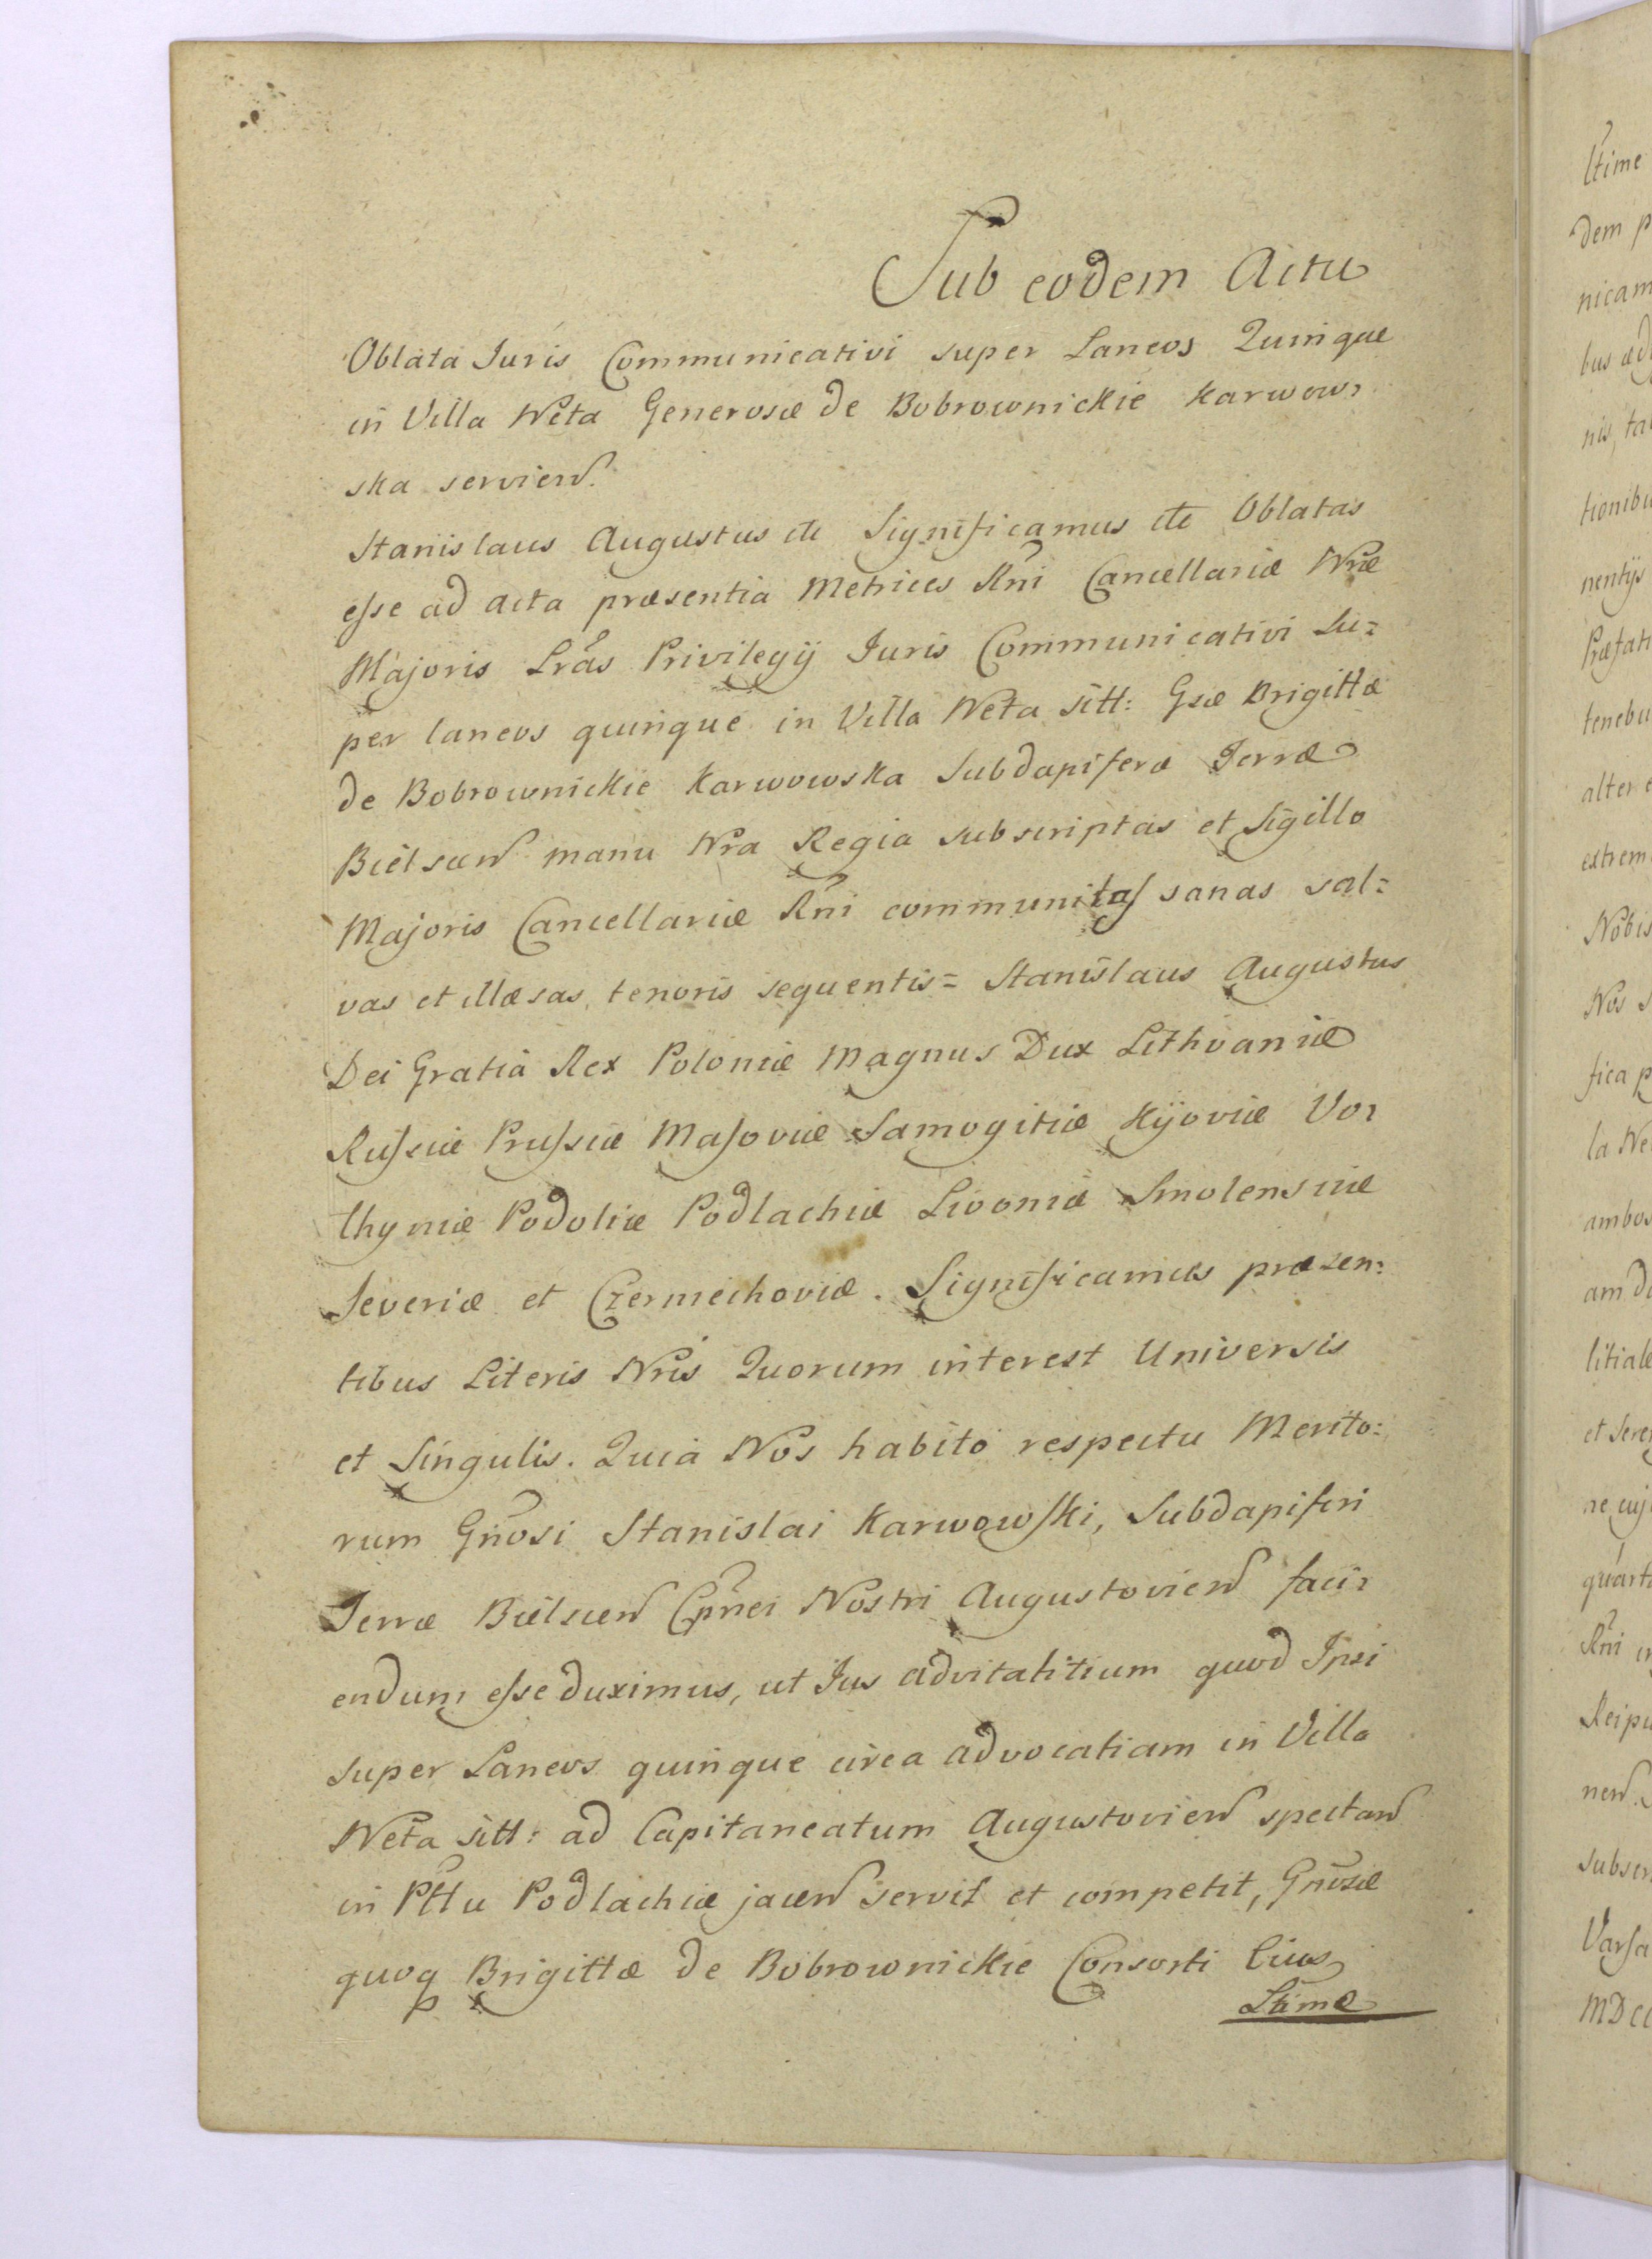 Sub eodem Actu
Oblata Juris Communicativi super Laneos Quinque
in Villa Neta Generosæ de Bobrownickie Karwow=
ska servien.
Stanislaus Augustus etc Significamus etc Oblatas
esse ad acta præsentia Metrices Rñi Cancellariæ Nræ
Majoris Lras Privilegij Juris Communicativi Su=
per laneos quinque in Villa Neta sitt: Gsæ Brigittæ
de Bobrownickie Karwowska Subdapiferæ Terræ
Bielscen manu Nra Regia subscriptas et Sigillo
Majoris Cancellariæ Rñi communitas sanas sal=
vas et illæsas, tenoris sequentis= Stanislaus Augustus
Dei Gratia Rex Poloniæ Magnus Dux Lithvaniæ
Russiæ Prussiæ Masoviæ Samogitiæ Kijoviæ Vo=
lhyniæ Podoliæ Podlachiæ Livoniæ Smolensciæ
Severiæ et Czerniechoviæ. Significamus præsen=
tibus Literis Nris Quorum interest Universis
et Singulis. Quia Nos habito respectu Merito=
rum Gñosi Stanislai Karwowski, Subdapiferi
Terræ Bielscen Cpñei Nostri Augustovien faci=
endum esse duximus, ut Jus advitalitium quod Ipsi
super Laneos quinque circa advocatiam in Villa
Neta sitt: ad Capitaneatum Augustovien spectan
in Pttu Podlachiæ jacen servit et competit, Gñosæ
quoq Brigittæ de Bobrownickie Consorti Eius
Ltimæ
ltime
dem p
nicam
nis, ta
tionibu
nentijs
Præfati
tenebu
alter e
extrem
Nobis
Nos s
fica p
la Ne
ambos
am d
litiale
et Sere
ne cuj
quarta
Rñi i
Reipu
nen.
subscr
Varsa
MDCC